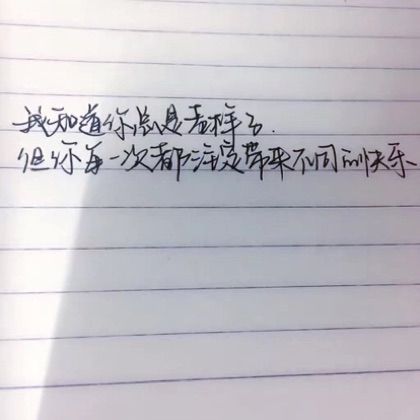 我知道你总是老样子.
但你每一次都注定带来不同的快乐、